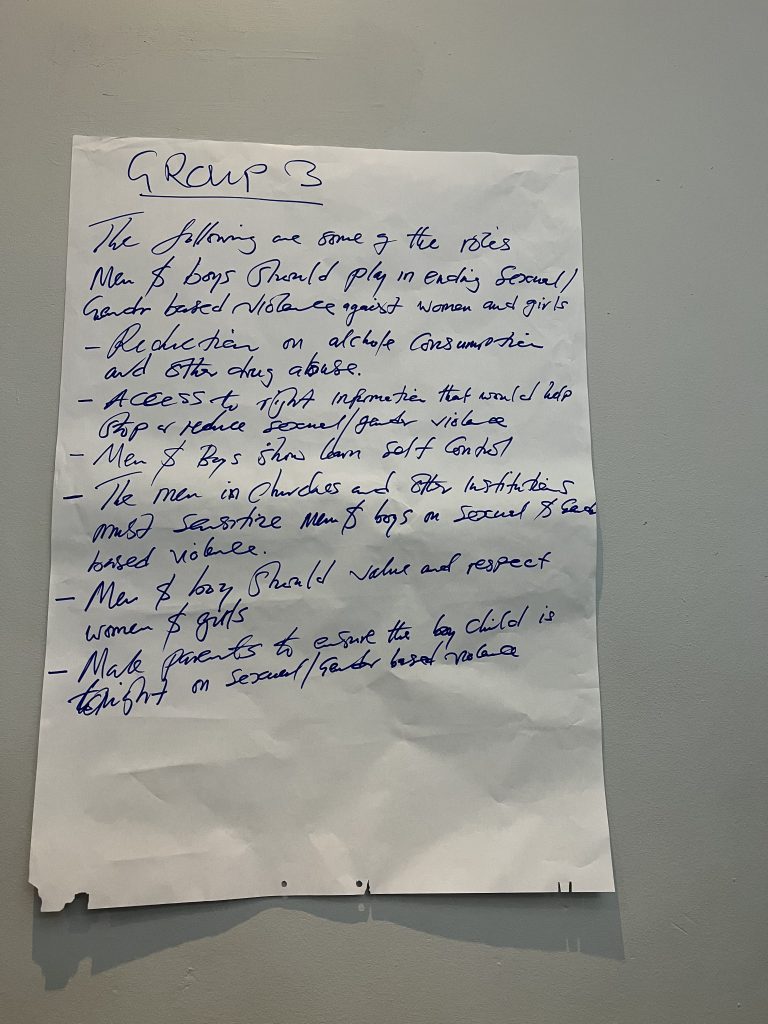 GROUP 3
The following are some of the roles
Men & boys should play in ending sexual/
Gender based violence against women and girls
- Reduction on alchole consumption
and other drug abuse.
- Access to right information that would help
stop or reduce sexual/gender violence
- Men & Boys show learn self control
- The men in churches and other institutions
must sensitize Men & boys on sexual &
based violence.
- Men & boy should value and respect
women & girls
- Male parents to ensure the boy child is
on sexual/Gender based violence